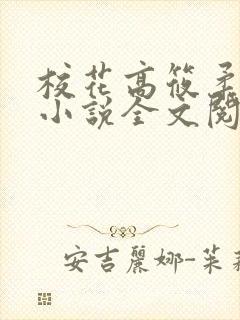 校花高筱柔
小説全文閱
安吉麗娜-茱莉